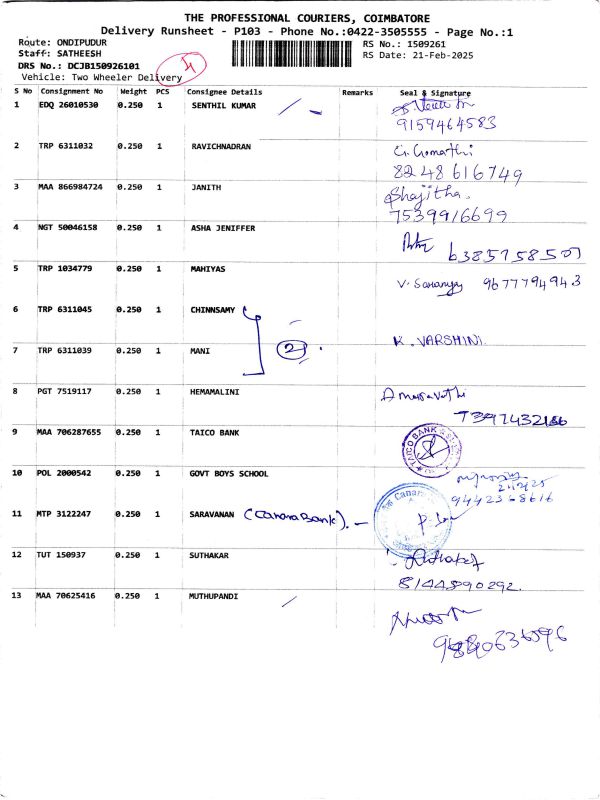 THE PROFESSIONAL COURIERS, COIMBATORE
Delivery Runsheet - P103 - Phone No.:0422-3505555 - Page No.:1
Route: ONDIPUDUR RS No.: 1509261
Staff: SATHEESH RS Date: 21-Feb-2025
DRS No.: DCJB150926101
Vehicle: Two Wheeler Delivery
S No Consignment No Weight PCS Consignee Details Remarks Seal & Signature
1 EDQ 26010530 0.250 1 SENTHIL KUMAR
9159464583
2 TRP 6311032 0.250 1 RAVICHNADRAN G. Gomathi
8248616749
3 MAA 866984724 0.250 1 JANITH Shajitha.
7539916699
4 NGT 50046158 0.250 1 ASHA JENIFFER
6385758507
5 TRP 1034779 0.250 1 MAHIYAS V. Saranya 9677794943
6 TRP 6311045 0.250 1 CHINNSAMY
2 K. VARSHINI
7 TRP 6311039 0.250 1 MANI
8 PGT 7519117 0.250 1 HEMAMALINI Amaravathi
9 MAA 706287655 0.250 1 TAICO BANK TAICO BANK
10 POL 2000542 0.250 1 GOVT BOYS SCHOOL
9442368616
11 MTP 3122247 0.250 1 SARAVANAN (Canara Bank). Canara
12 TUT 150937 0.250 1 SUTHAKAR Suthakar
8144890292.
13 MAA 70625416 0.250 1 MUTHUPANDI